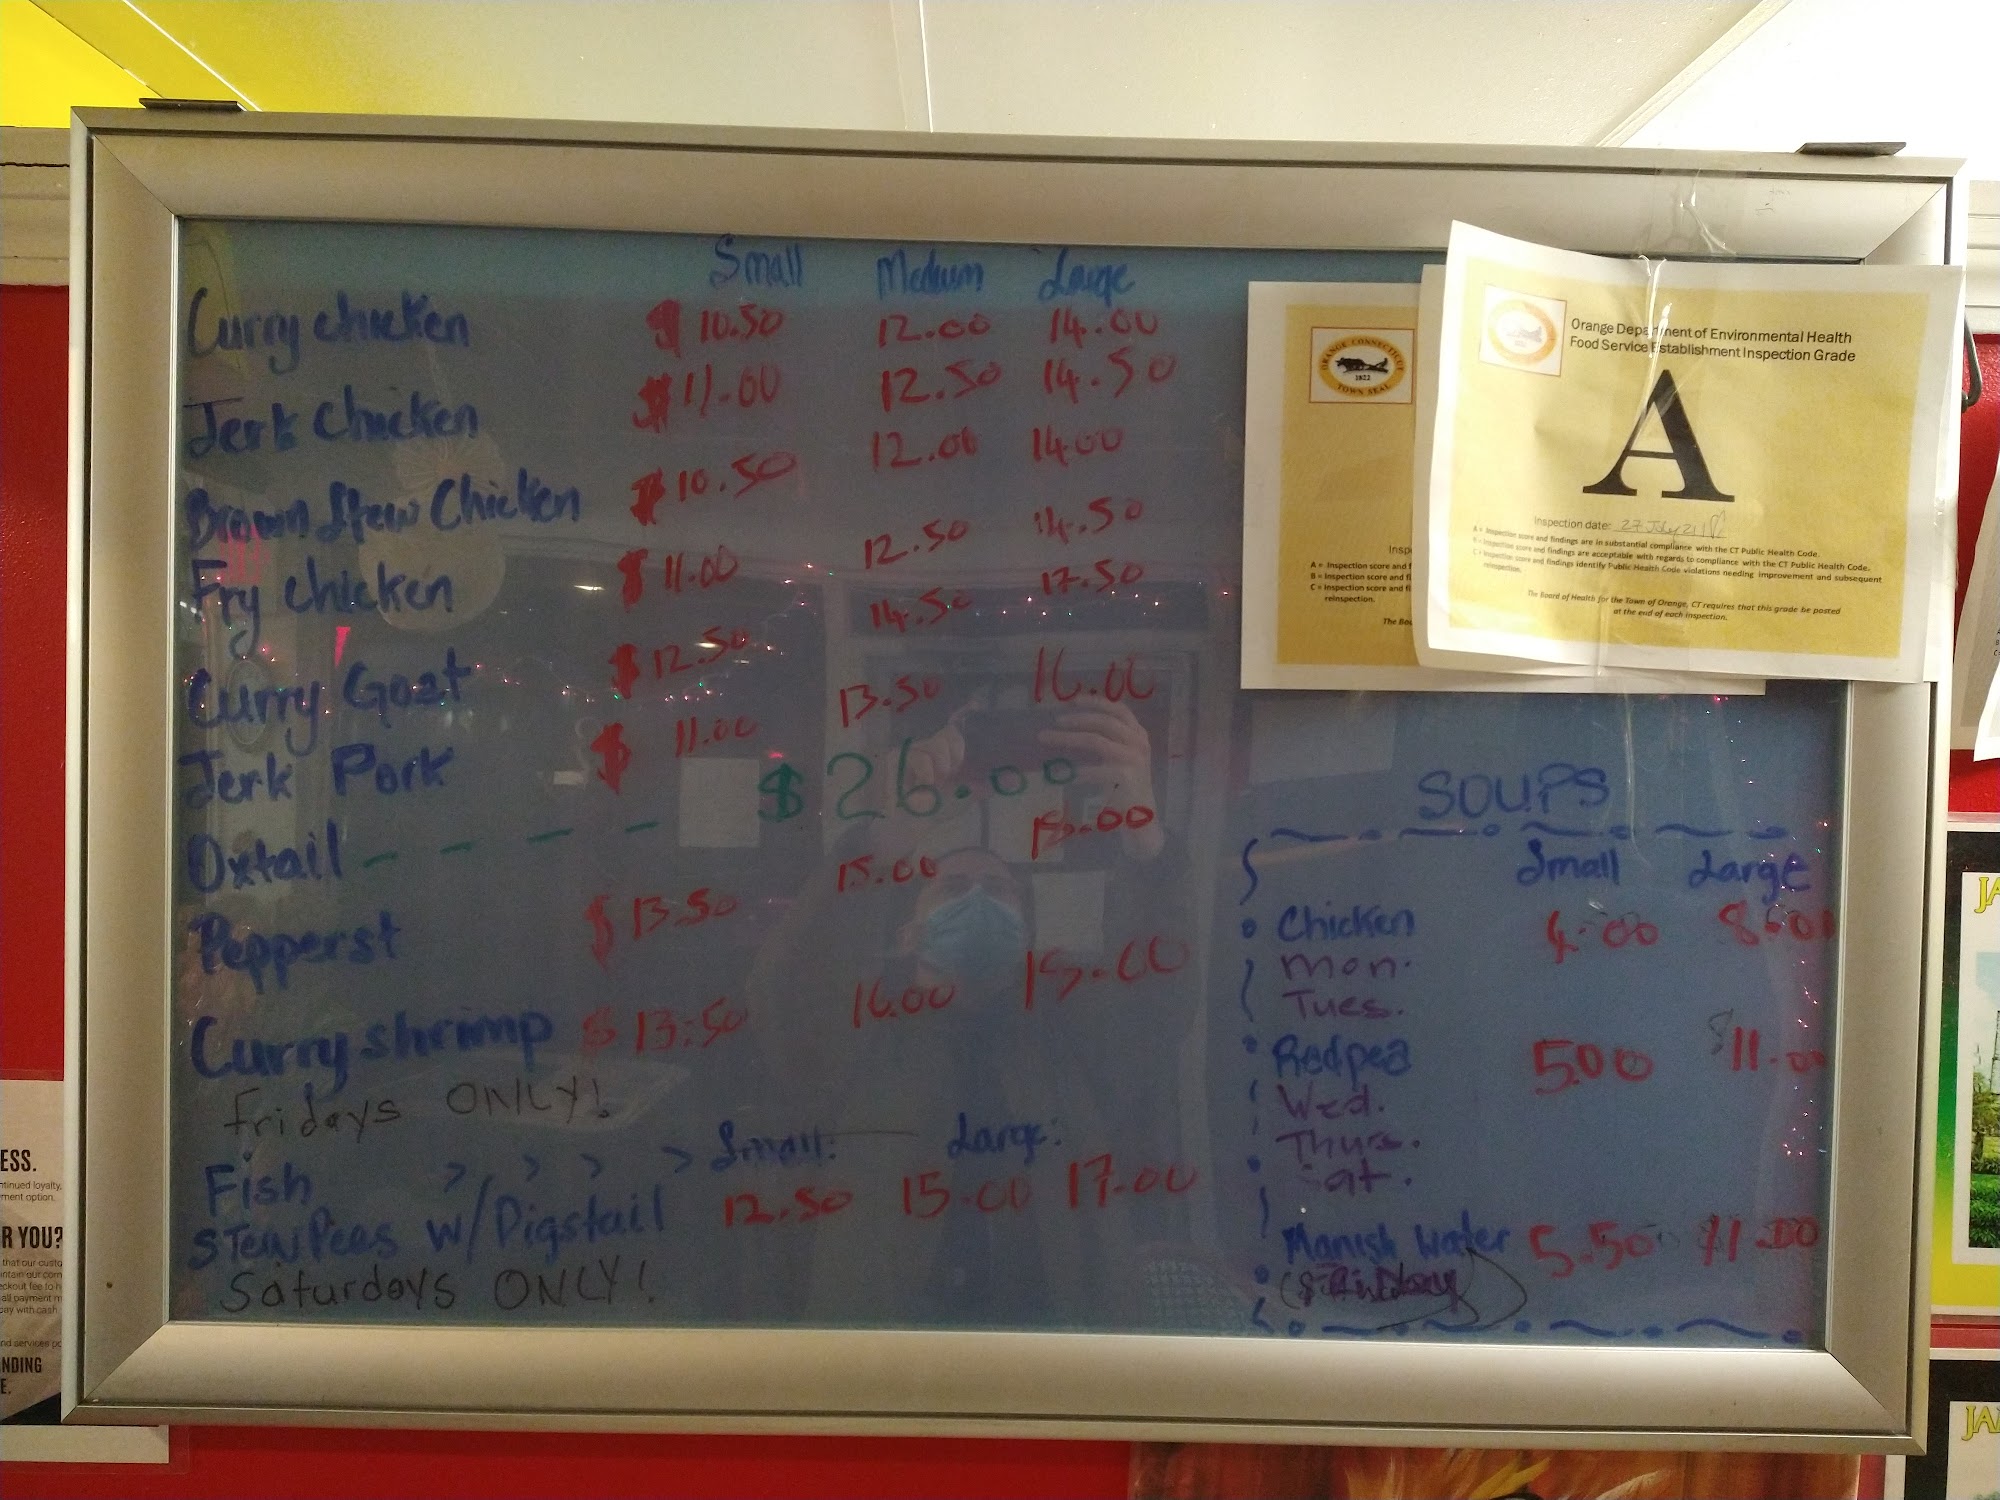 Small Medium Large
Curry chicken $ 10.50 12.00 14.00
Jerk Chicken $ 11.00 12.50 14.50
Brown Stew Chicken $ 10.50 12.00 14.00
Fry Chicken $ 11.00 12.50 14.50
Curry Goat $ 12.50 14.50 17.50
Jerk Pork $ 11.00 13.50 16.00
Oxtail - - - - $26.00
Pepperst $ 13.50 15.00
Curry shrimp $ 13.50 16.00
Fridays ONLY!
Fish > > > > Small: Large:
STEW Pees w/Pigstail 12.50 15.00 17.00
Saturdays ONLY!
SOUPS
Small Large
Chicken
Mon.
Tues.
Redpea 5.00 $11.00
Wed.
Thurs.
Manish Water 5.50 11.00
ORANGE CONNECTICUT
1822
TOWN SEAL
A = Inspection score and f
B = Inspection score and fi
C = Inspection score and fi
reinspection.
The Bou
Orange Department of Environmental Health
Food Service Establishment Inspection Grade
A
Inspection date: 27 July 21
A = Inspection score and findings are in substantial compliance with the CT Public Health Code.
B = Inspection score and findings are acceptable with regards to compliance with the CT Public Health Code.
C = Inspection score and findings identify Public Health Code violations needing improvement and subsequent
reinspection.
The Board of Health for the Town of Orange, CT requires that this grade be posted
at the end of each inspection.
ESS.
ntinued loyalty,
ment option.
R YOU?
that our custo
ckout fee to h
all payment m
pay with cash
nd services po
NDING
E.
JA
JA